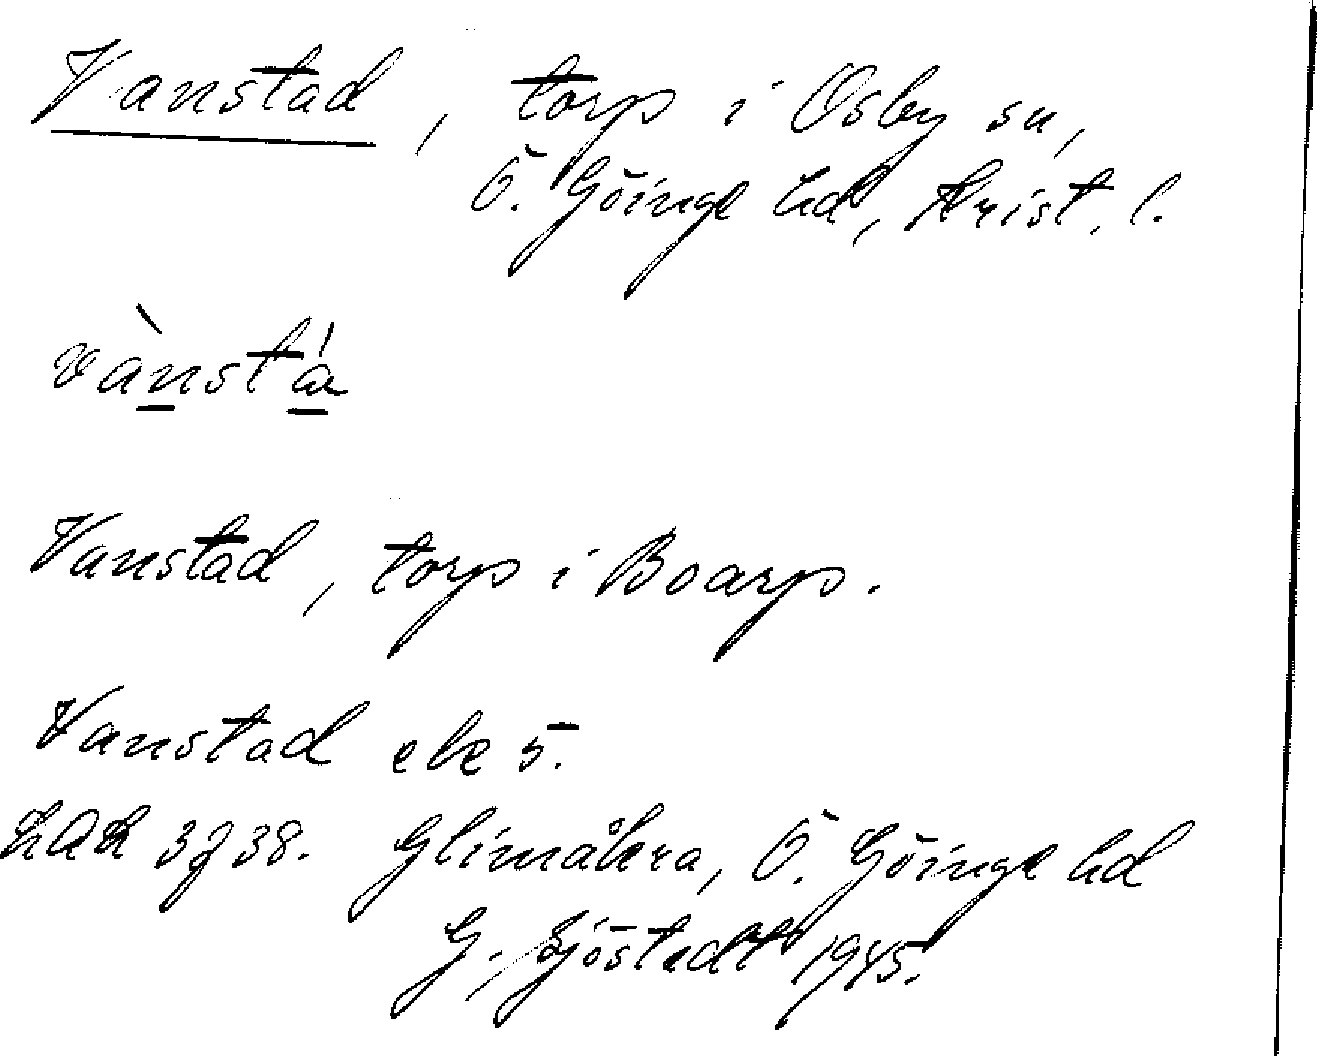 Vanstad, torp i Osby sn,
Ö. Göinge hd, Krist. l.
vànstá
Vanstad, torp i Boarp.
Vanstad ek 5.
3938. Glimåkra, Ö. Göinge hd
G. Sjöstedt 1945.